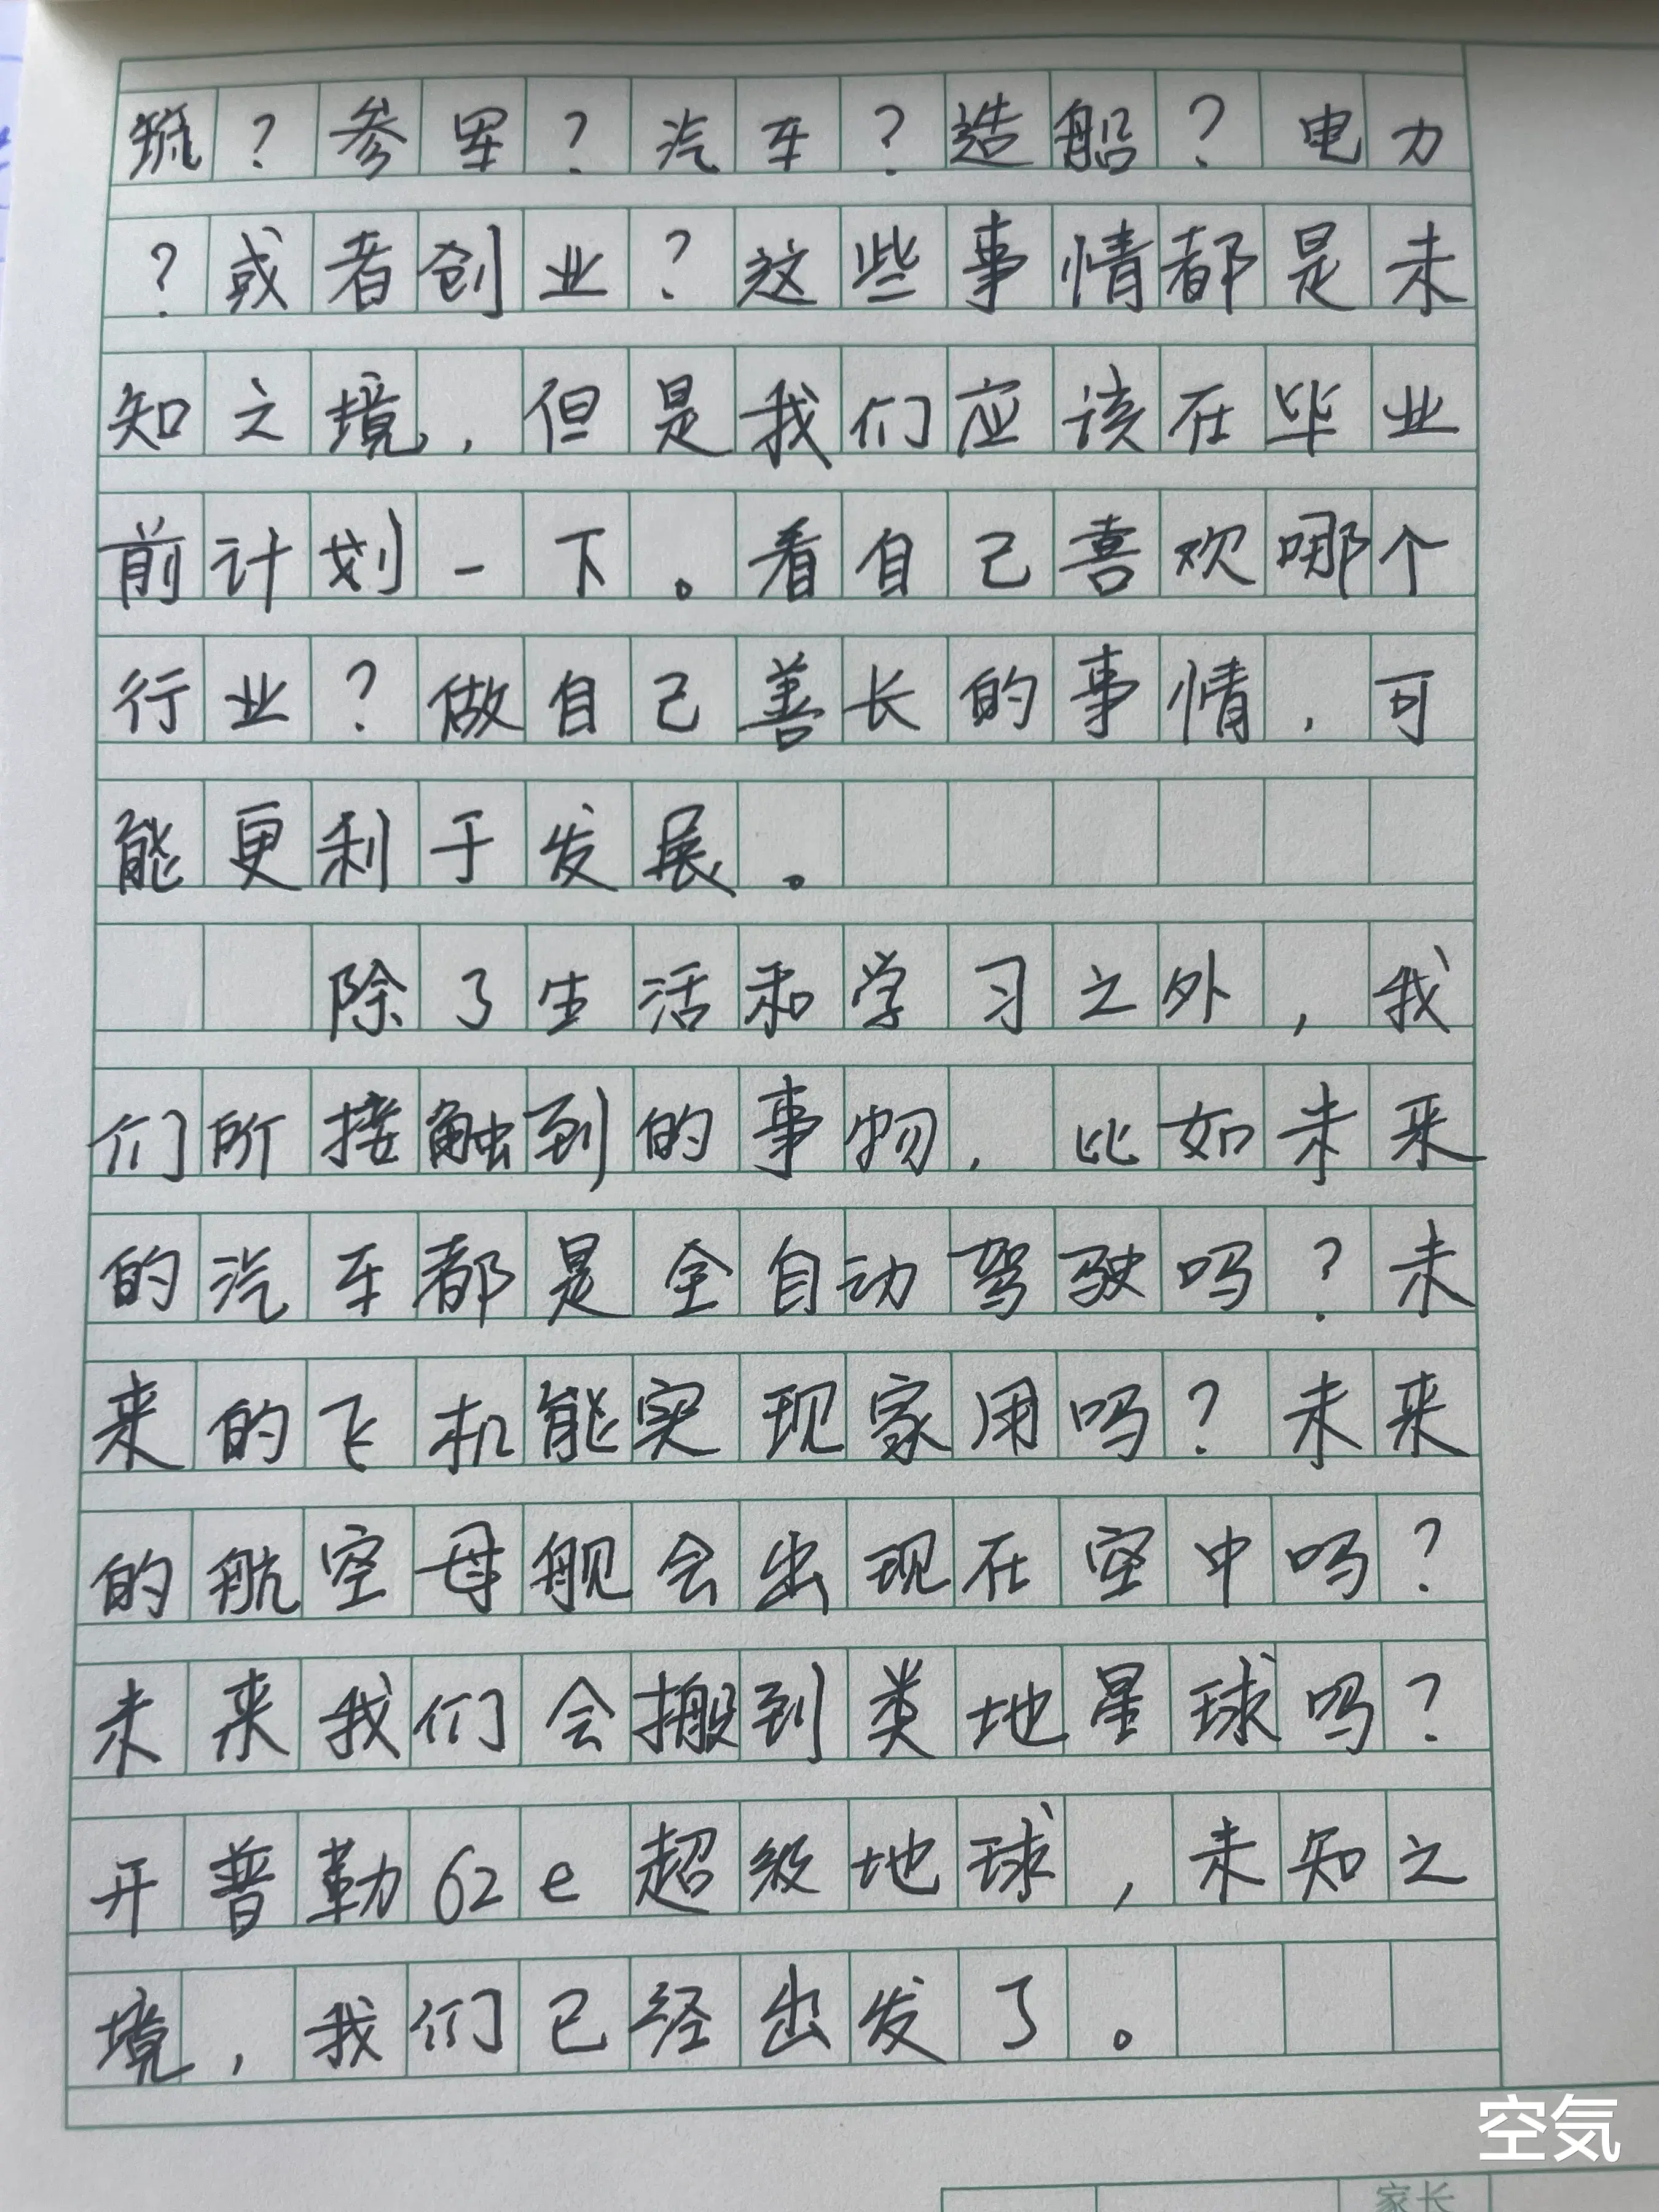 ？参军？汽车？造船？电力
？或者创业？这些事情都是未
知之境，但是我们应该在毕业
前计划一下。看自己喜欢哪个
行业？做自己善长的事情，可
能更利于发展。
除了生活和学习之外，我
们所接触到的事物，比如未来
的汽车都是全自动驾驶吗？未
来的飞机能实现家用吗？未来
的航空母舰会出现在空中吗？
未来我们会搬到类地星球吗？
开普勒62e超级地球，未知之
境，我们已经出发了。
空気
家长